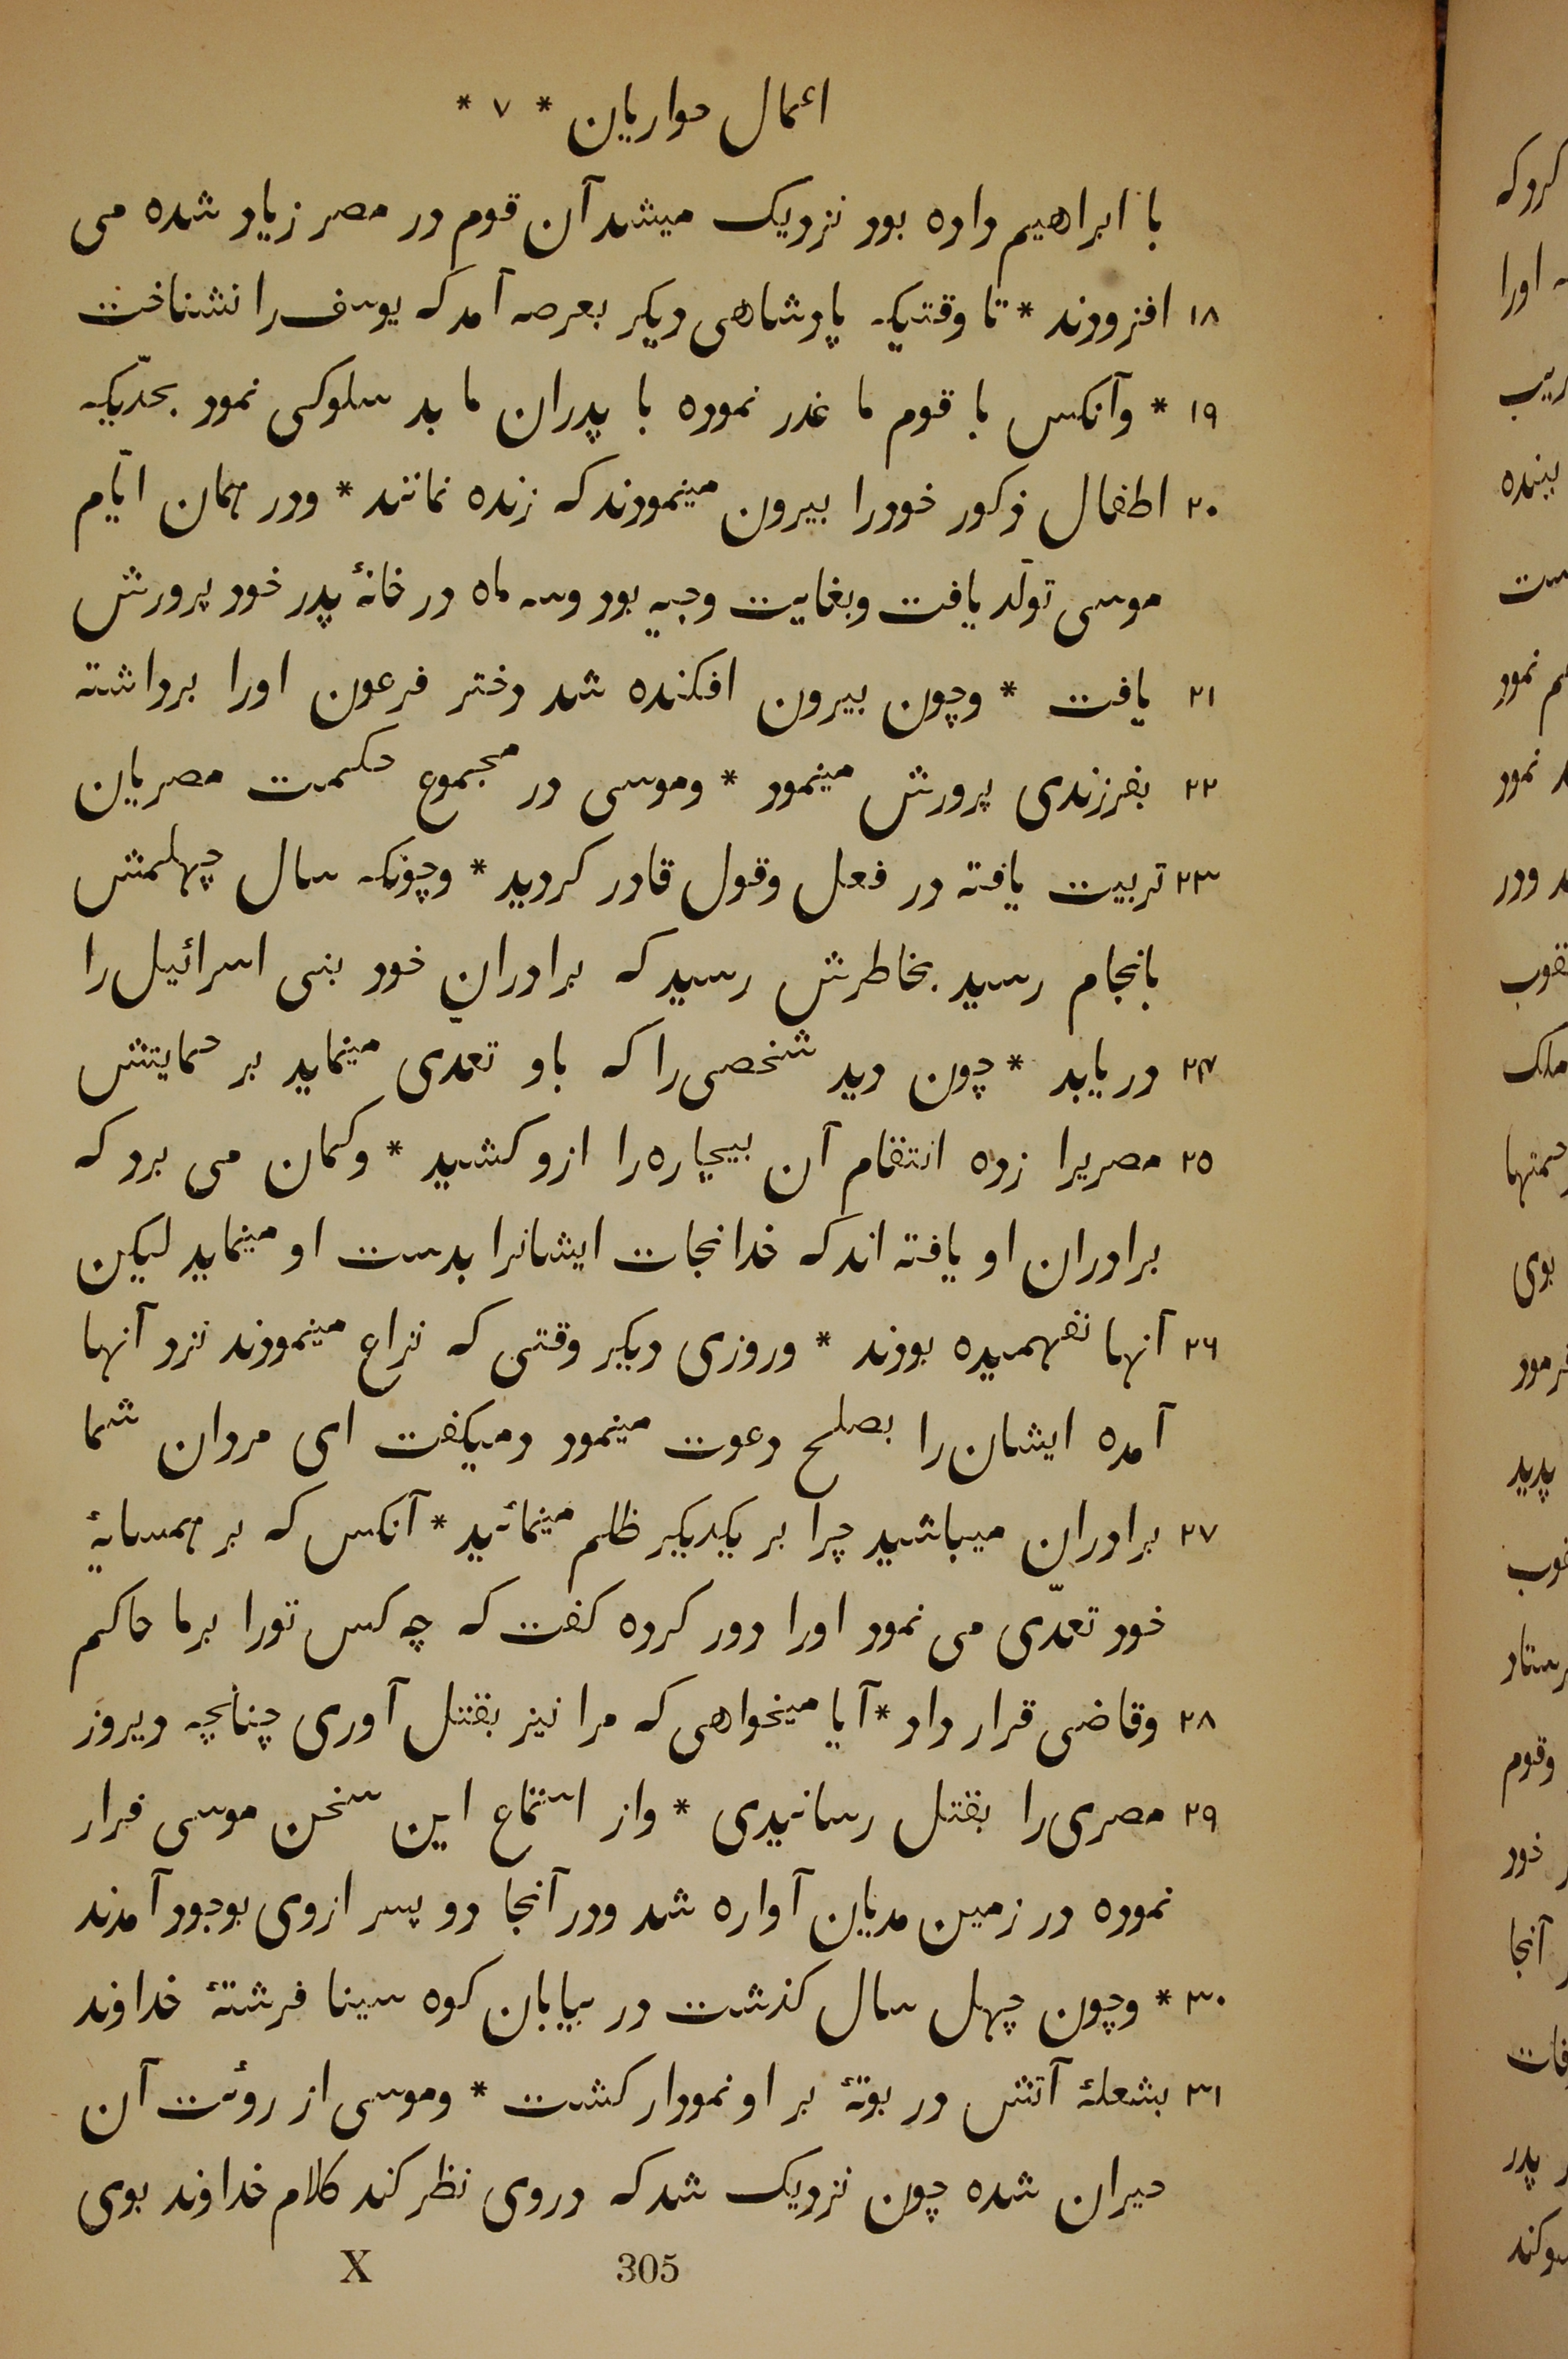 اعمال حواریان * ۷ *
با ابراهیم داده بود نزدیک میشد آن قوم در مصر زیاد شده می
۱۸ افزودند * تا وقتیکه پادشاهی دیکر بعرصه آمد که یوسف را نشناخت
۱۹ * وآنکس با قوم ما غدر نموده با پدران ما بد سلوکی نمود بحدّیکه
۲۰ اطفال ذکور خودرا بیرون مینمودند که زنده نمانند * ودر همان ایّام
موسی تولّد یافت وبغایت وجیه بود وسه ماه در خانهٔ پدر خود پرورش
۲۱ یافت * وچون بیرون افکنده شد دختر فرعون اورا برداشته
۲۲ بفرزندی پرورش مینمود * وموسی در مجموع حکمت مصریان
۲۳ تربیت یافته در فعل وقول قادر کردید * وچونکه سال چهلمش
بانجام رسید بخاطرش رسید که برادران خود بنی اسرائیل را
۲۴ در یابد * چون دید شخصی را که باو تعدّی مینماید بر حمایتش
۲۵ مصریرا زده انتقام آن بیچاره را ازو کشید * وکمان می برد که
برادران او یافته اند که خدا نجات ایشانرا بدست او مینماید لیکن
۲۶ آنها نفهمیده بودند * وروزی دیکر وقتی که نزاع مینمودند نزد آنها
آمده ایشان را بصلح دعوت مینمود دمیکفت ای مردان شما
۲۷ برادران میباشید چرا بر یکدیکر ظلم مینمائید * آنکس که بر همسایهٔ
خود تعدّی می نمود اورا دور کرده کفت که چه کس تورا برما حاکم
۲۸ وقاضی قرار داد * آیا میخواهی که مرا نیز بقتل آوری چنانچه دیروز
۲۹ مصری را بقتل رسانیدی * واز استماع این سخن موسی فرار
نموده در زمین مدیان آواره شد ودر آنجا دو پسر ازوی بوجود آمدند
۳۰ * وچون چهل سال کذشت در بیابان کوه سینا فرشتهٔ خداوند
۳۱ بشعلهٔ آتش در بوتهٔ بر او نمودار کشت * وموسی از روئت آن
حیران شده چون نزدیک شد که دروی نظر کند کلام خداوند بوی
X 305
کرد که
اورا
بیند
نمود
نمود
ودر
ملک
بوی
پدید
وقوم
خود
آنجا
پدر